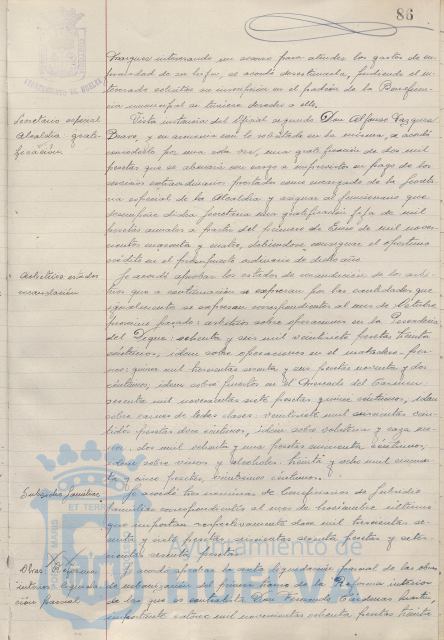 86
AYUNTAMIENTO DE HUELVA
Marquez interesando un socorro para atender los gastos de en-
fermedad de su hija, se acordó desestimarla, pudiendo el in-
teresado solicitar su inscripción en el padrón de la Beneficen-
cia municipal si tuviere derecho a ello.
Secretaría especial
Alcaldía grati-
ficación
Vista instancia del Oficial segundo Don Alfonso Vazquez
Bravo, y en armonía con lo solicitado en la misma, se acordó
concederle por una sola vez, una gratificación de dos mil
pesetas que se abonarán con cargo a imprevistos en pago de los
servicios extraordinarios prestados como encargado de la Secreta-
ria especial de la Alcaldía y asignar al funcionario que
desempeñe dicha Secretaría una gratificación fija de mil
pesetas anuales a partir del primero de Enero de mil nove-
cientos cuarenta y cuatro, debiéndose consignar el oportuno
crédito en el presupuesto ordinario de dicho año.
Arbitrios estados
recaudación
Se acordó aprobar los estados de recaudación de los arbi-
trios que a continuación se expresan por las cantidades que
igualmente se expresan correspondientes al mes de Octubre
próximo pasado: arbitrios sobre operaciones en la Pescadería
del Dique, ochenta y seis mil veintisiete pesetas treinta
céntimos, idem sobre operaciones en el matadero,
quince mil trescientas sesenta y seis pesetas noventa y dos
céntimos, idem sobre puestos en el Mercado del Carmen
sesenta mil novecientas siete pesetas quince céntimos, idem
sobre carnes de todas clases, veintisiete mil
pesetas doce céntimos, idem sobre volatería y caza me-
nor, dos mil ochenta y una pesetas cincuenta céntimos,
idem sobre vinos y alcoholes, treinta y ocho mil
y cinco pesetas, céntimos.
Subsidio familiar
Se acordó tres nóminas de Subsidio
familiar correspondientes al mes de Noviembre último
que importan respectivamente doce mil trescientas se-
senta y siete pesetas, seiscientas sesenta pesetas y sete-
cientas sesenta pesetas.
Obras Reforma
interior liquida-
ción parcial
Se acordó aprobar la sexta liquidación parcial de las obras
de urbanización del primer tramo de la Reforma interior
de las que es contratista Don Fernando Cárdenas
importante catorce mil novecientas ochenta pesetas treinta
MARIS ET TERRAE
Ayuntamiento de
HUELVA